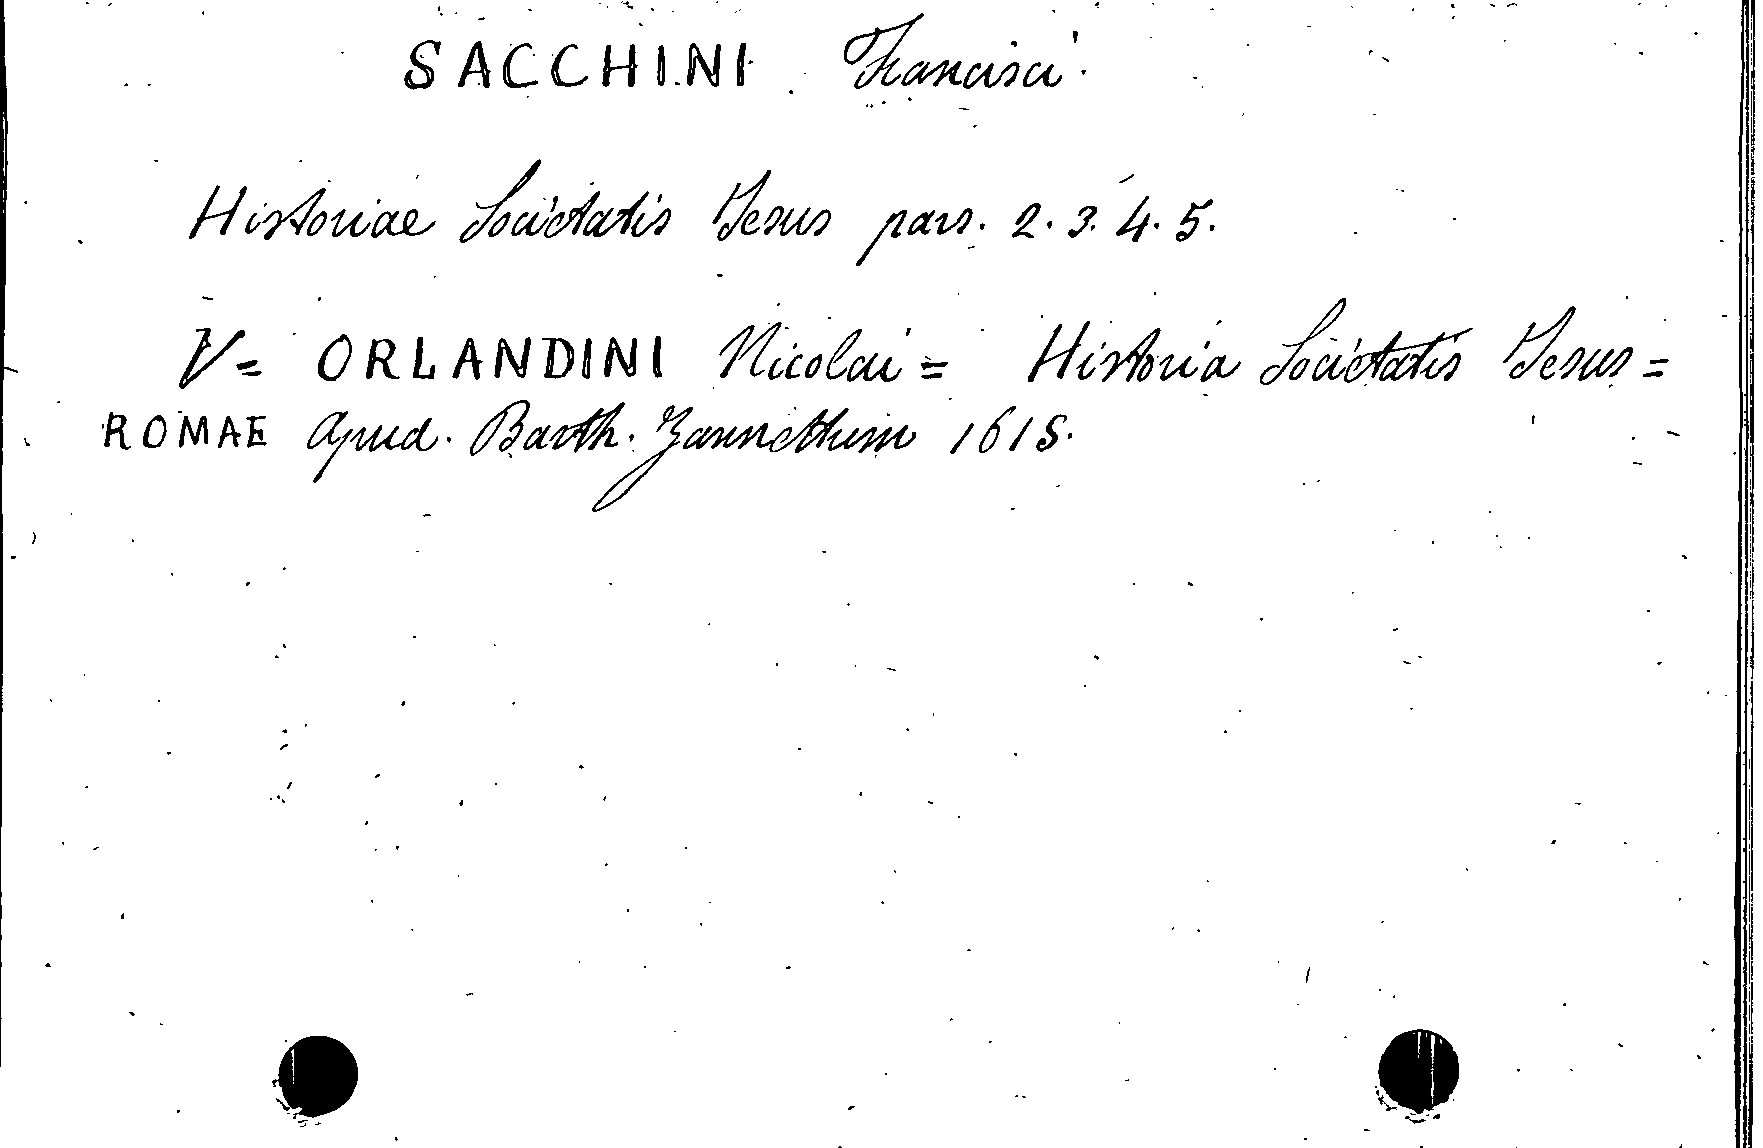 SACCHINI Francisci
Historiae Societatis Iesus pars. 2. 3. 4. 5.
V= ORLANDINI Nicolai = Historia Societatis Iesus =
ROMAE Apud. Barth. Zannethum 1615.